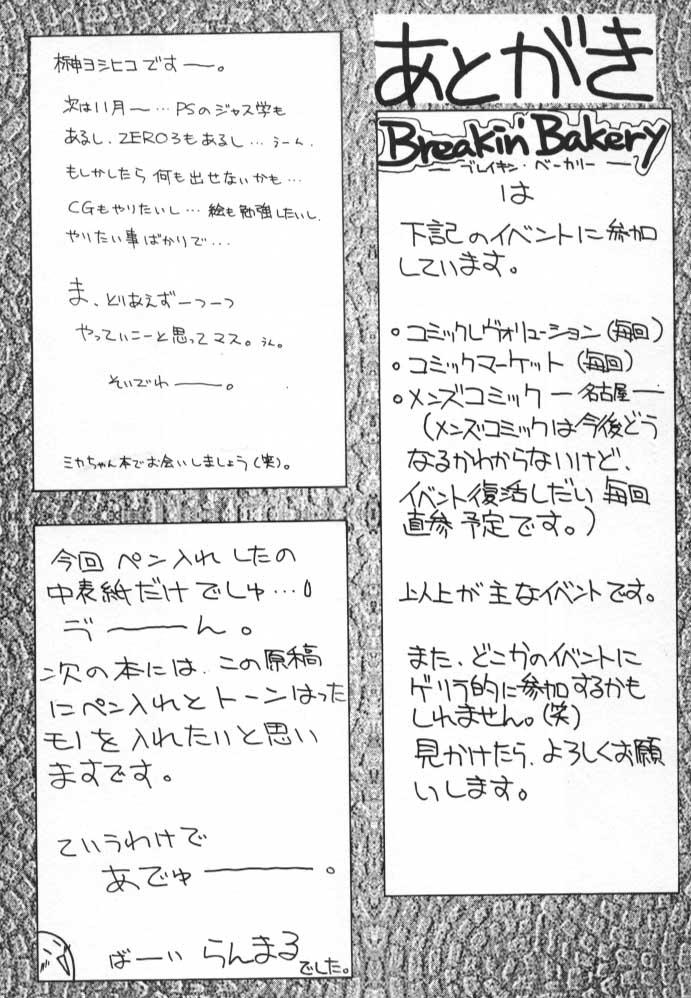 あとがき
Breakin' Bakery
— ブレイキン・ベーカリー —
は
下記のイベントに参加
しています。
○コミックレヴォリューション(毎回)
○コミックマーケット(毎回)
○メンズコミック — 名古屋 —
(メンズコミックは今後どう
なるかわからないけど、
イベント復活しだい毎回
直参予定です。)
以上が主なイベントです。
また、どこかのイベントに
ゲリラ的に参加するかも
しれません。(笑)
見かけたら、よろしくお願
いします。
榊ヨシヒコです——。
次は11月〜…PSのジャス学も
あるし、ZERO3もあるし…うーん、
もしかしたら何も出せないかも…
CGもやりたいし…絵も勉強したいし、
やりたい事ばかりで…
ま、とりあえず一つ一つ
やっていこーと思ってマス。うん。
そいでわ——。
ミカちゃん本でお会いしましょう(笑)。
今回ペン入れしたの
中表紙だけでしゅ…
ゔ——ん。
次の本には、この原稿
にペン入れとトーンはった
モノを入れたいと思い
ますです。
ていうわけで
あでゅ———。
ばーい らんまるでした。